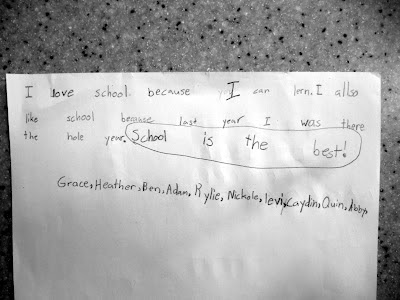 I love school because I can lern. I allso
like school because last year I was there
the hole year. School is the best!
Grace, Heather, Ben, Adam, Rylie, Nickole, levi, Caydin, Quin, Abby,